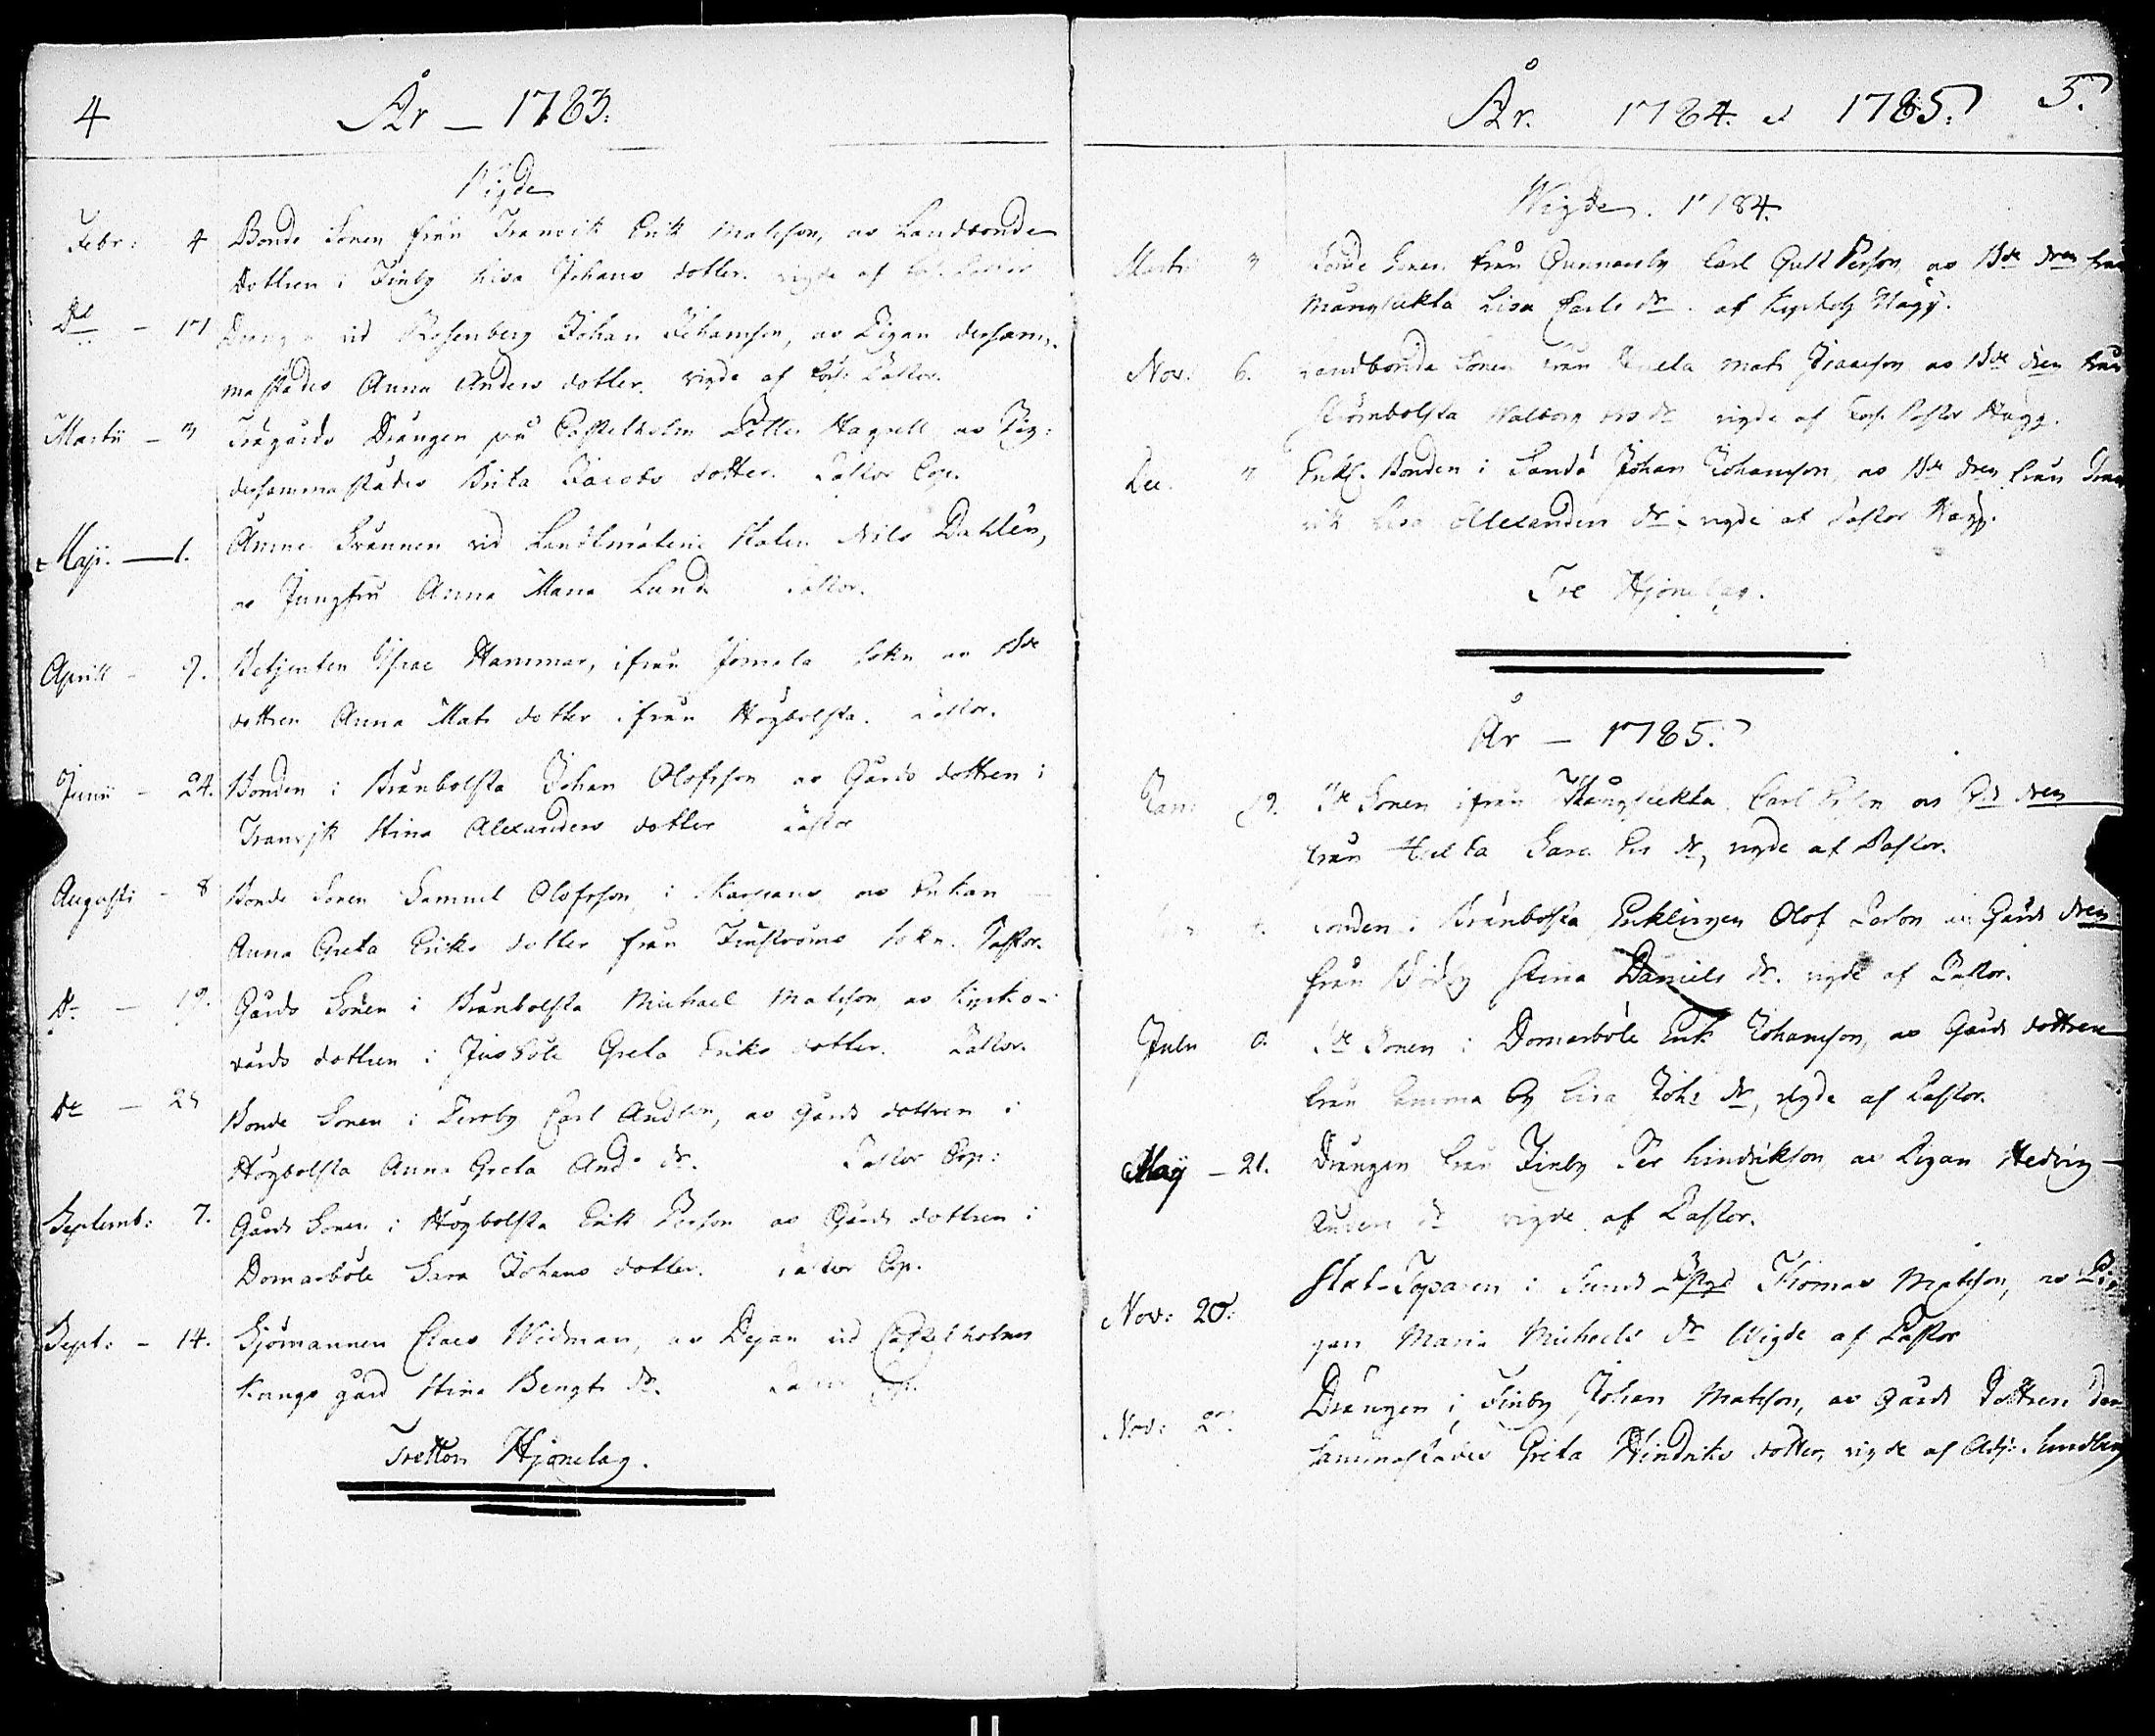 4 År — 1783.
Vigde
Febr: 4 Bonde Sonen från Tranvik Erik Matsson, os Landbonde
Dottren i Finby Lisa Johans dotter. vigde af
D:o — 17 vid Rosenberg Johan Johansson, os Pigan dersam-
mastädes Anna Anders dotter. vigde af Pastor.
Martii — 3 Trägårds Drängen på Castelholm Petter Hagrell os Pig:
dersammastädes Brita Jacobs dotter. Pastor Cop.
Maji. — 1. Svännen vid Landtmäterie Staten Nils Dahlén,
os Jungfru Anna Maria Lund Pastor.
Aprill — 9. Betjenten Isac Hammar, ifrån Jomala Sokn os Bde
dottren Anna Mats dotter ifrån Högbolsta. Pastor.
Junii — 24. Bonden i Brånbolsta Johan Olofsson os Gårds dottren i
Tranvik Stina Alexanders dotter Pastor
Augusti — 8 Bonde Sonen Samuel Olofsson, i os Enkan
Anna Greta Eriks dotter från Finströms Sokn. Pastor.
D:o — 19. Gårds Sonen i Brånbolsta Michael Matsson, os Kyrko-
värds dottren i Jussböle Greta Eriks dotter. Pastor.
D:o — 25 Bonde Sonen i Persby Carl Andsson, os Gårds dottren i
Högbolsta Anna Greta And: dr. Pastor Cop:
Septemb: 7. Gårds Sonen i Högbolsta Erik Persson os Gårds dottren i
Domarböle Sara Johans dotter. Pastor Cop.
Sept: — 14. Sjömannen Claes Widman, os Dejan vid Castelholms
Kungs gård Stina Bengts dr. Pastor Cop.
Tretton Hjonelag.
År. 1784. et 1785. 5.
Wigde. 1784.
Martii 3 Bonde Sonen från Gunnarsby Carl Gust Persson, os Bde dren från
Mångstekta Lisa Carls dr. af Kyrkoh Hägg.
Nov: 6. Landbonde Sonen från Hulta Mats Isacsson os Bde dren från
Strömbolsta Walborg Ers dr vigde af Pastor Hägg.
Dec. Enkl. Bonden i Sandö Johan Johansson, os Bde dren från Tran
vik Lisa Alexanders dr. vigde af Pastor Hägg.
Tre Hjonelag.
År — 1785.
Jan: 19. Bde Sonen ifrån Mångstekta Carl os Gds dren
från Hulta Sara Ers dr, vigde af Pastor.
Bonden i Brånbolsta Enklingen Olof Larson os Gårds dren
från Wivby Stina Daniels dr. vigde af Pastor.
Bde Sonen i Domarböle Erik Johansson, os Gårds dottren
från by Lisa Johs dr, vigde af Pastor.
Maij — 21. Drängen från Finby Per Hindrikson, os Pigan Hedvig
dr vigde af Pastor.
Nov: 20: Slåt-Toparen i Sund Thomas Matsson, os Pi
gan Maria Michaels dr Wigde af Pastor
Nov: 27: Drängen i Finby Johan Matsson, os Gårds Dottren der
sammastädes Greta Hindriks dotter, vigde af Adj: Lundberg